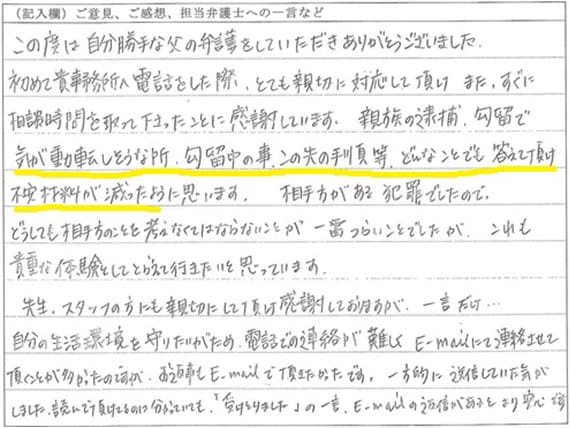 (記入欄)ご意見、ご感想、担当弁護士への一言など
この度は自分勝手な父の弁護をしていただきありがとうございました。
初めて貴事務所へ電話をした際、とても親切に対応して頂け また、すぐに
相談時間を取って下さったことに感謝しています。 親族の逮捕、勾留で
気が動転しそうな所、勾留中の事、この先の手順等、どんなことでも 答えて頂け
不安材料が減ったように思います。 相手方がある犯罪でしたので、
どうしても相手方のことを考えなくてはならないことが一番つらいことでしたが、これも
貴重な体験としてとらえて行きたいと思っています。
先生、スタッフの方にも親切にして頂け感謝しておりますが、一言だけ…
自分の生活環境を守りたいがため、電話での連絡が難しく E-mailにて連絡させて
頂くことが多かったのですが、お返事も E-mailで頂きたかったです。一方的に送信していた気が
しました。読んで頂けてるのは分っていても、「受けとりました」の一言、E-mailの返信があるとより安心です